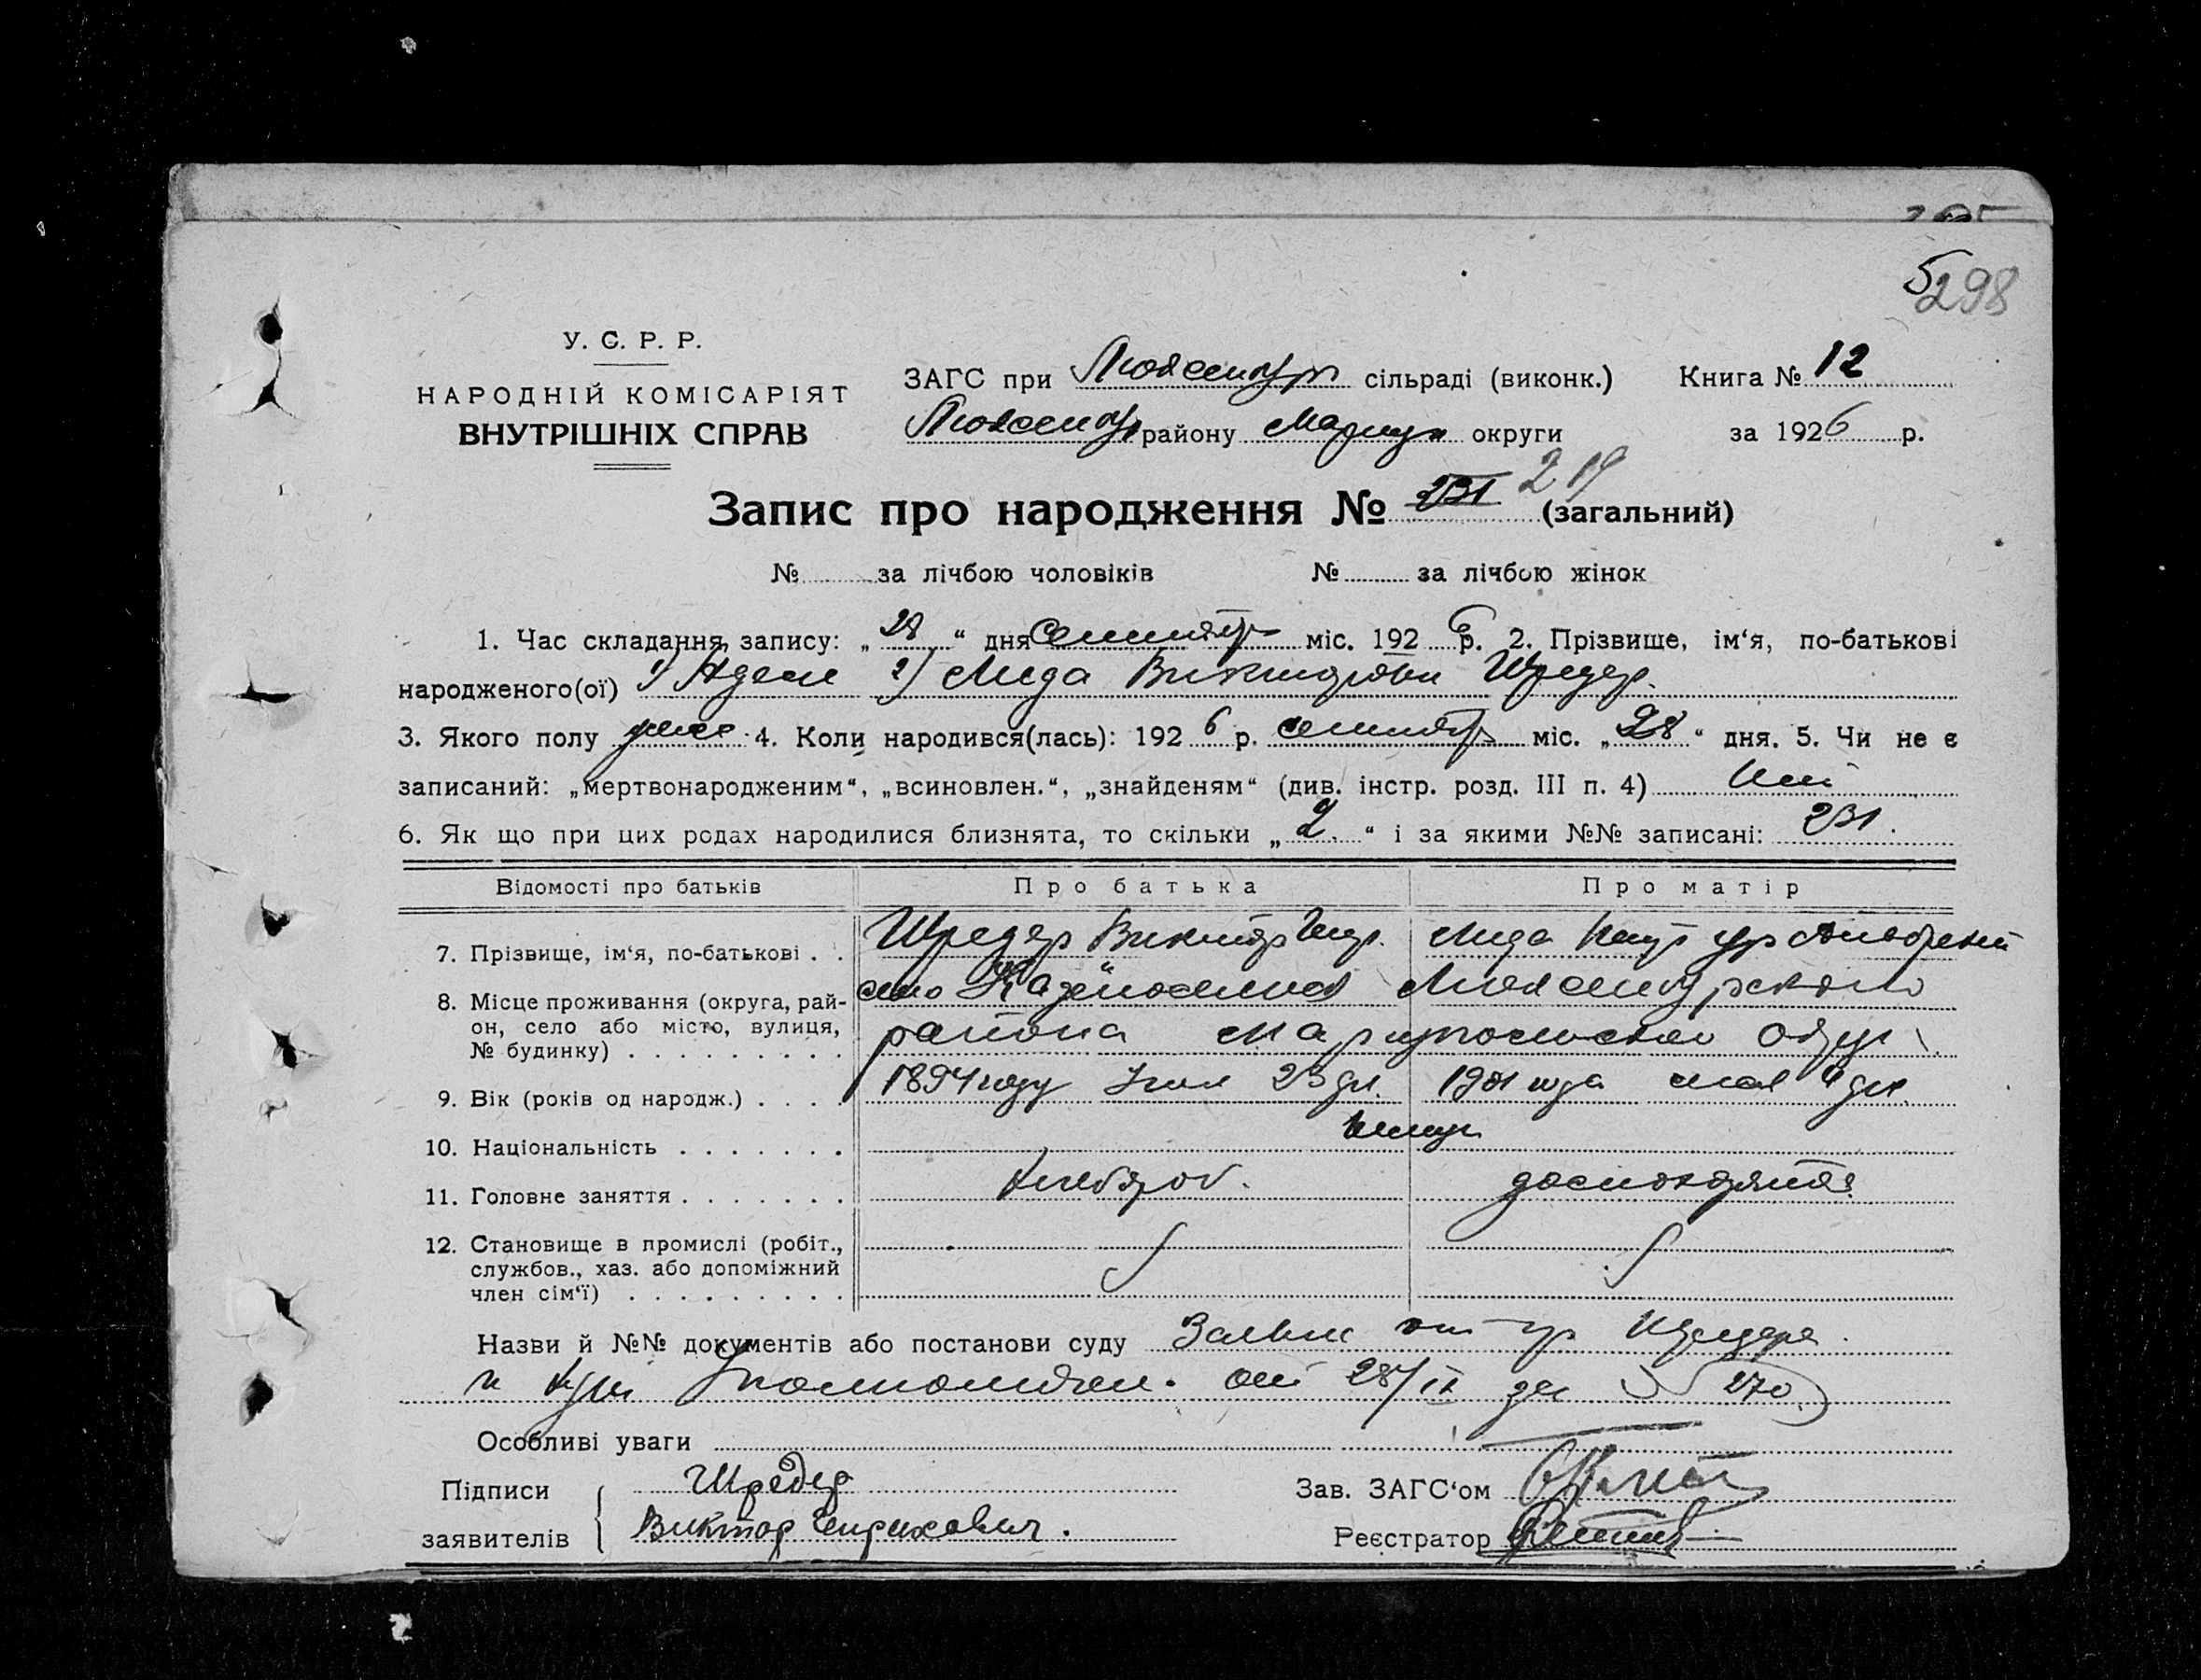 298
У. С. Р. Р.
НАРОДНІЙ КОМІСАРІЯТ
ВНУТРІШНІХ СПРАВ
ЗАГС при Люксембур сільраді (виконк.) Книга № 12
Люксембур району Мариуп округи за 1926 р.
Запис про народження № 231 219 (загальний)
№ за лічбою чоловіків № за лічбою жінок
1. Час складання запису: „28“ дня Сентября міс. 1926 р. 2. Прізвище, ім‘я, по-батькові
народженого(ої) 1) Адели 2) Лида Викторовы Шредер.
3. Якого полу женс 4. Коли народився(лась): 1926 р. сентября міс. „28“ дня. 5. Чи не є
записаний: „мертвонародженим“, „всиновлен.“, „знайденям“ (див. інстр. розд. III п. 4) Нет
6. Як що при цих родах народилися близнята, то скільки „2“ і за якими №№ записані: 231.
Відомості про батьків Про батька Про матір
7. Прізвище, ім‘я, по-батькові . . Шредер Виктор Лида
8. Місце проживання (округа, рай-
он, село або місто, вулиця,
№ будинку) . . . . . . . . .
село Люксембургского
района Мариупольского Округ
9. Вік (років од народж.) . . . . 1894 году 23 дн. 1901 года мая 4 дн.
10. Національність . . . . . . . Немцы
11. Головне заняття . . . . . . . Хлебороб. домохозяйка
12. Становище в промислі (робіт.,
службов., хаз. або допоміжний
член сім‘ї) . . . . . . . . .
Назви й №№ документів або постанови суду Заявлен от гр Шредера
и от 28/IX за № 270
Особливі уваги
Підписи Шредер Зав. ЗАГС‘ом
заявителів Виктор Генрихович. Реєстратор